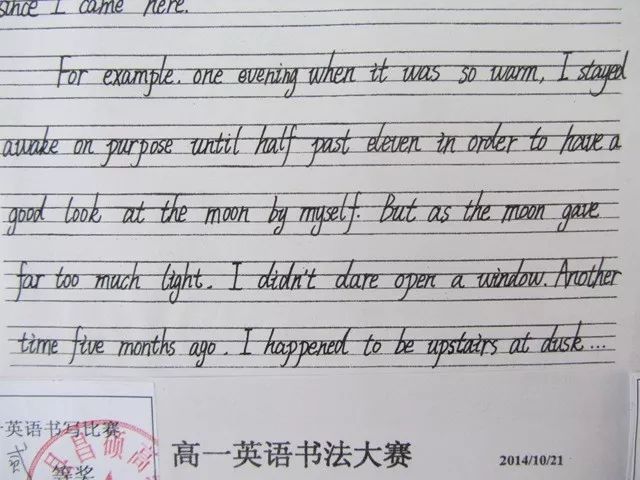 since I came here.
For example. one evening when it was so warm, I stayed
awake on purpose until half past eleven in order to have a
good look at the moon by myself. But as the moon gave
far too much light. I didn't dare open a window. Another
time five months ago. I happened to be upstairs at dusk...
一英语书写比赛
昌硕高
等奖
高一英语书法大赛
2014/10/21